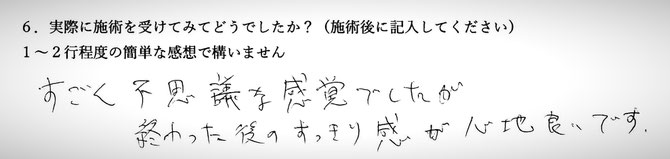 ６．実際に施術を受けてみてどうでしたか？（施術後に記入してください）
１～２行程度の簡単な感想で構いません
すごく不思議な感覚でしたが
終わった後のすっきり感が心地良いです.